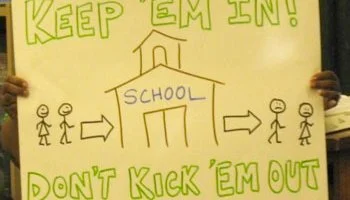 KEEP 'EM IN!
SCHOOL
DON'T KICK 'EM OUT